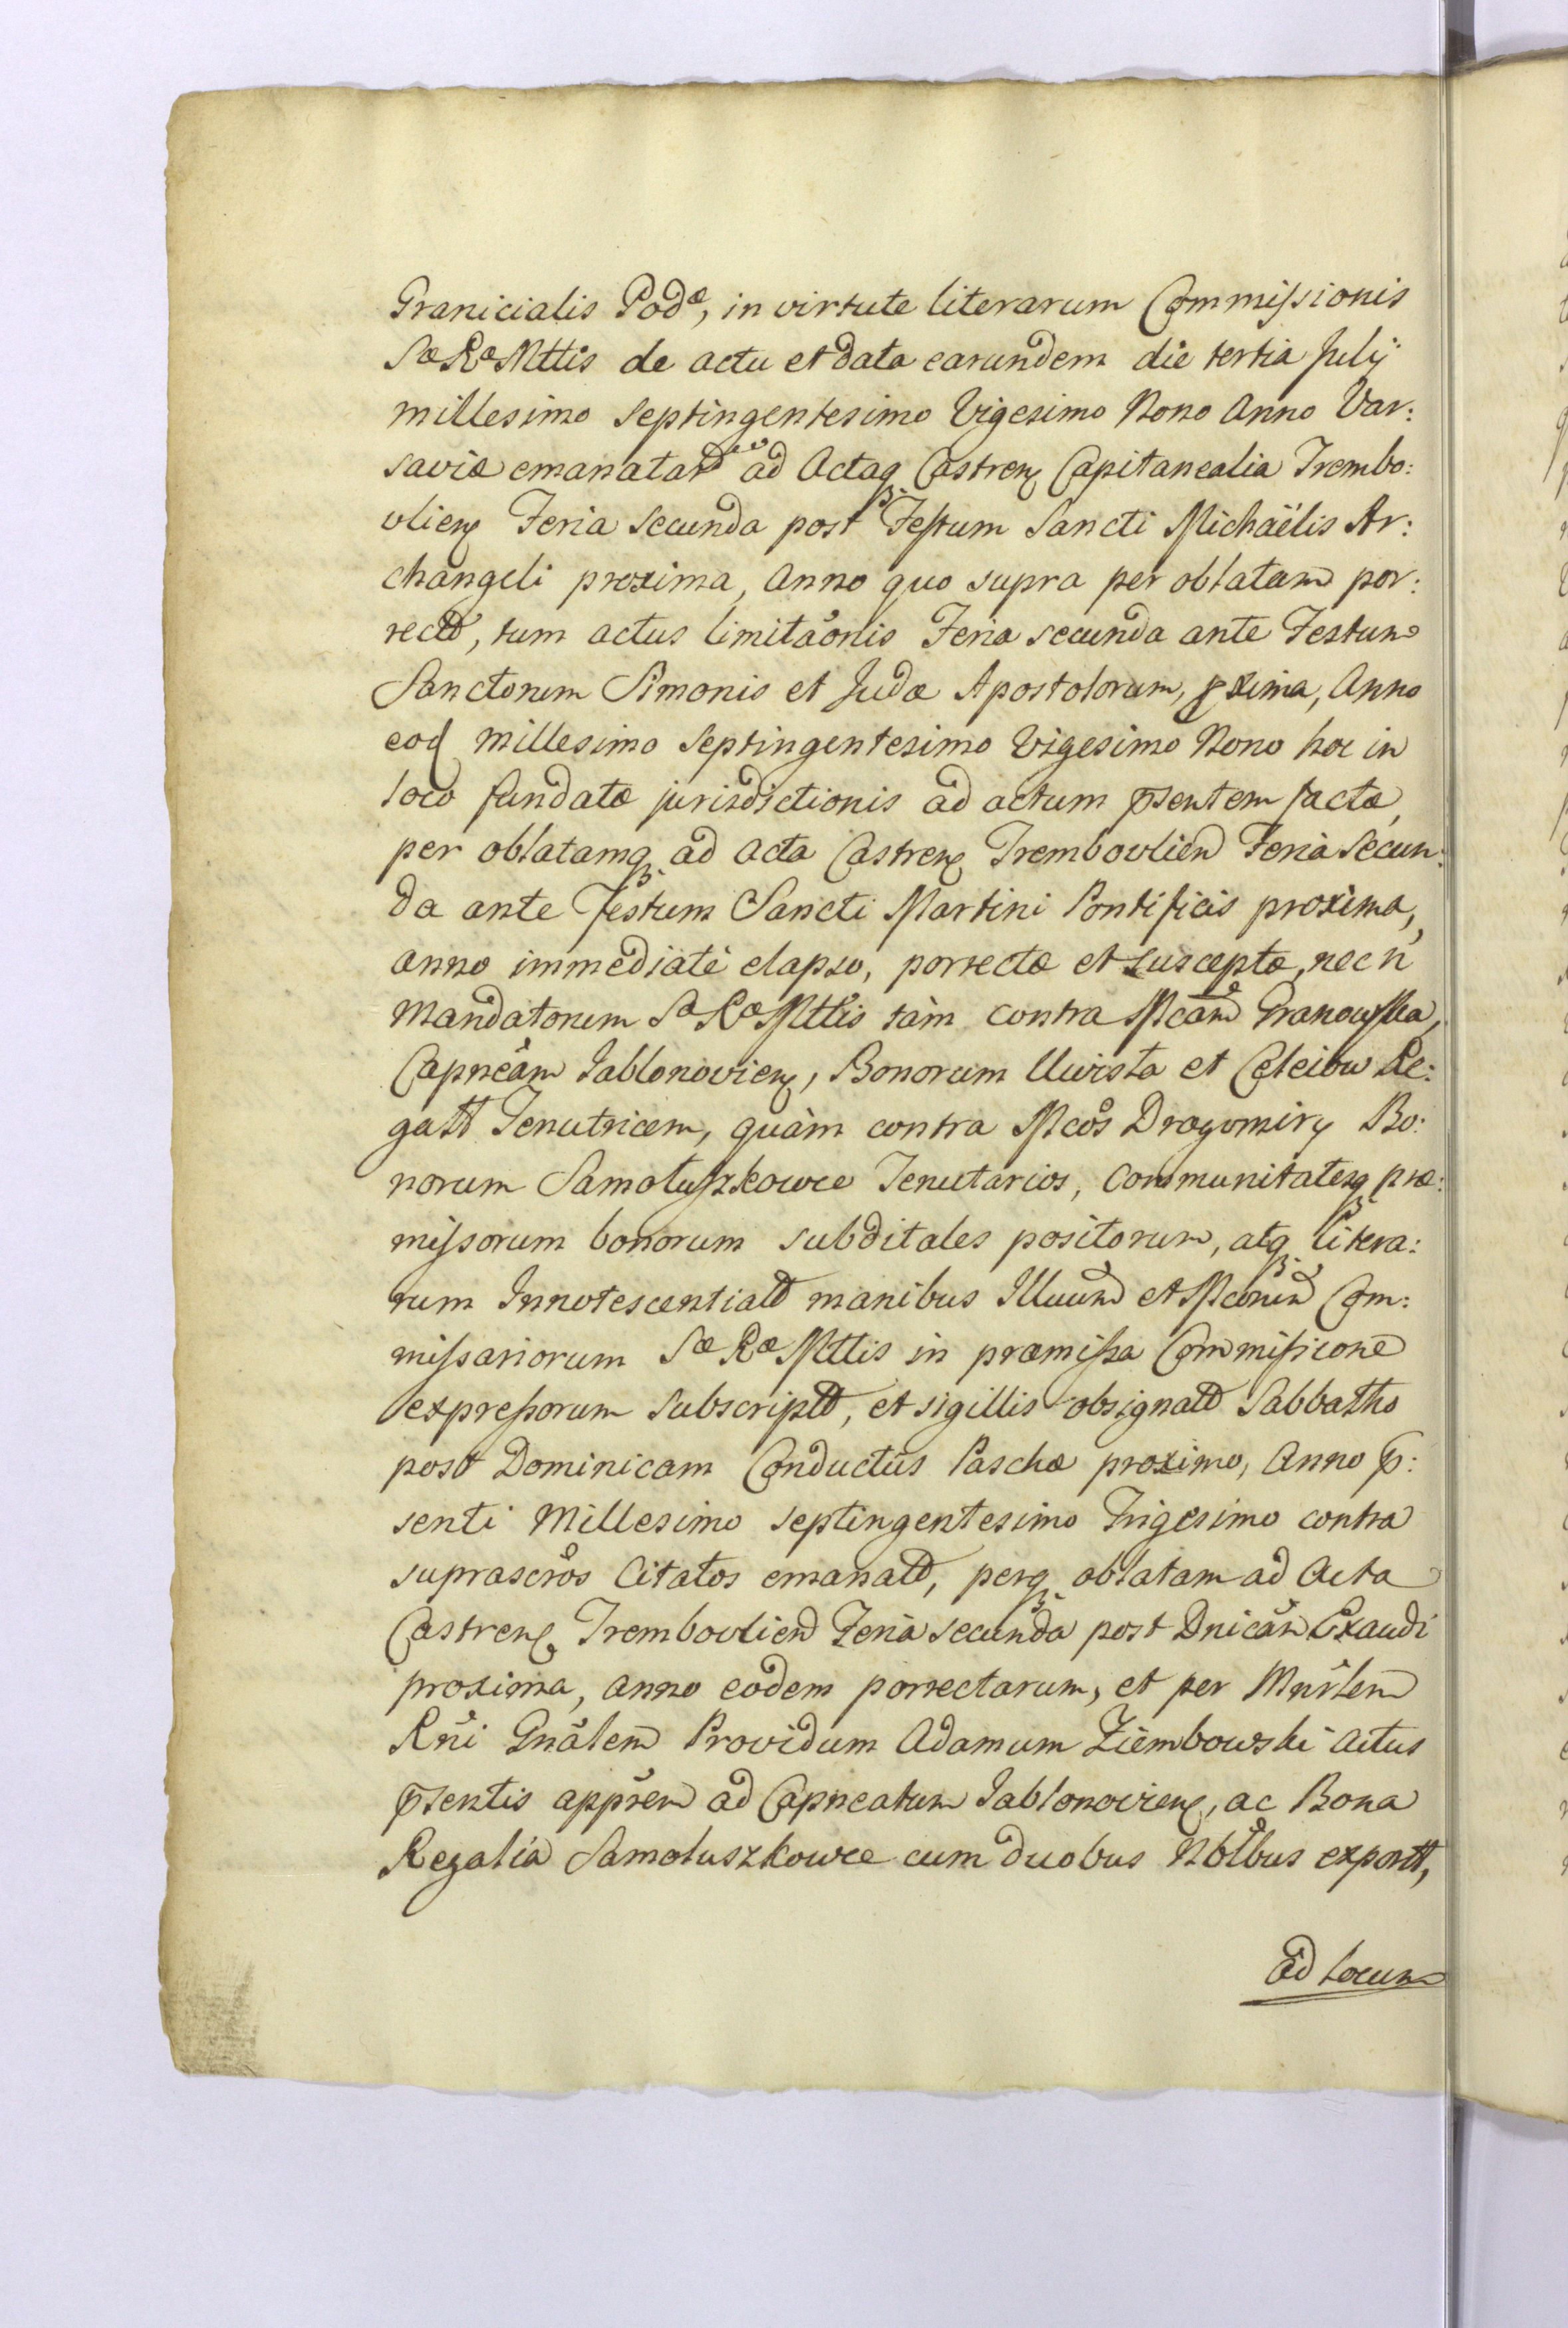 Granicialis Podæ, in virtute literarum Commissionis
Sæ Ræ Mttis de actu et data earundem die tertia Julij
millesimo Septingentesimo Vigesimo Nono Anno Var:
saviæ emanatar ad Actaq Castren Capitanealia Trembo:
vlien Feria Secunda post Festum Sancti Michaëlis Ar:
changeli proxima, Anno quo supra per oblatam por:
rect, tum actus limitaõnis Feria secunda ante Festum
Sanctorum Simonis et Judæ Apostolorum, pxima, Anno
eod millesimo Septingentesimo Vigesimo Nono hoc in
loco fundatæ jurisdictionis ad actum pñsentem factæ,
per oblatamq ad Acta Castren Trembovlien Feria Secun:
da ante Festum Sancti Martini Pontificis proxima,
anno immediatè elapso, porrectæ et susceptæ, nec ñ
Mandatorum Sæ Ræ Mttis tàm contra Mcam Granowska,
Capneam Jablonovien, Bonorum Uwisła et Celeiow Re:
galł Tenutricem, quàm contra Mcos Dragomiry Bo:
norum Samołuszkowce Tenutarios, Communitatesq præ:
missorum bonorum subditales positorum, atq litera:
rum Innotescentiał manibus Illuum et Mcorum Com:
missariorum Sæ Ræ Mttis in præmissa Commissione
expressorum subscript, et sigillis obsignat Sabbatho
post Dominicam Conductus Paschæ proximo, Anno p:
senti Millesimo septingentesimo Trigesimo contra
suprascros Citatos emanat, perq oblatam ad Acta
Castren Trembovlien Feria secunda post Dnicam Exaudi
proxima, anno eodem porrectarum, et per Mnrlem
Rñi Gnãlem Providum Adamum Ziembowski actus
pñsentis appren ad Capneatum Jablonovien, ac Bona
Regalia Samoluszkowce cum duobus Nobilbus exportt,
Ad locum